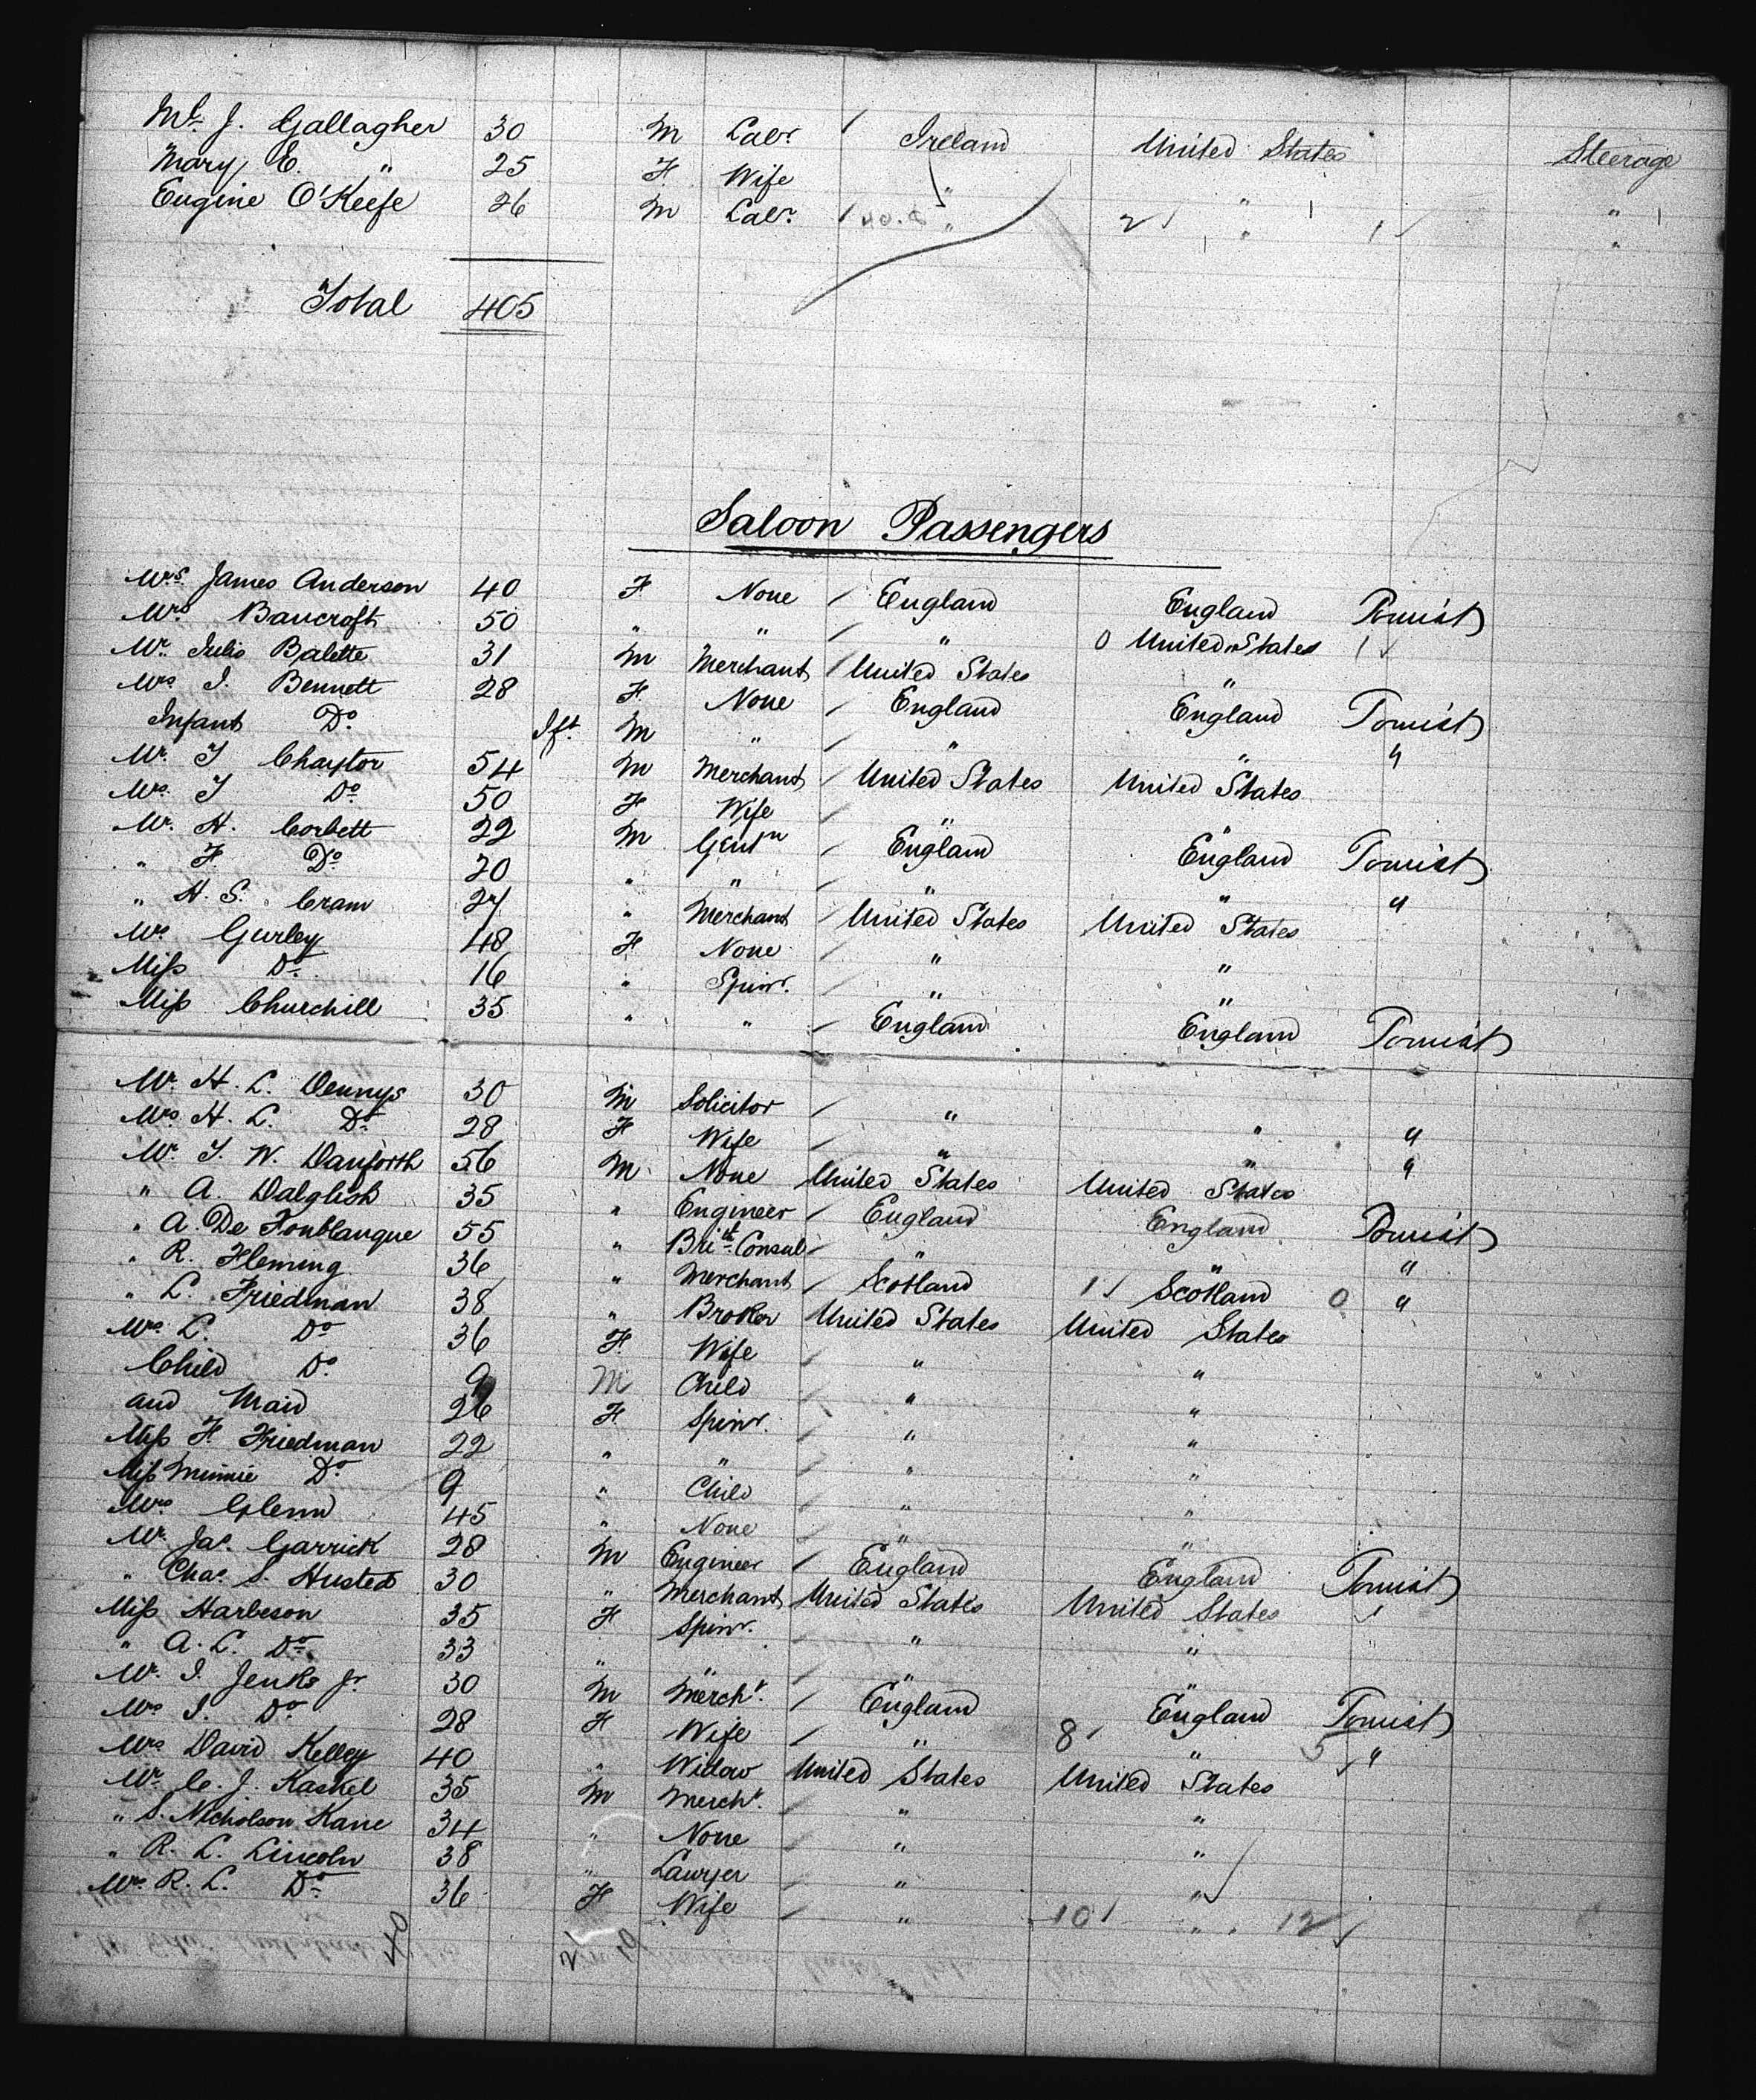 Mr. J. Gallagher 30 M Labr. Ireland United States Steerage
Mary E. " 25 F Wife " " "
Eugine O'Keefe 26 M Labr. " 2 " 1 "
Total 405
Saloon Passengers
Mrs. James Anderson 40 F None England England Tourist
Mrs Bancroft 50 " " " 0 United States 1
Mr. Julio Balette 31 M Merchant United States "
Mrs I. Bennett 28 F None England England Tourist
Infant Do. Ift. M " " " "
Mr. T Chaytor 54 M Merchant United States United States
Mrs. T Do. 50 F Wife " "
Mr. H. Corbett 22 M Gentn England England Tourist
" F Do. 20 " " " " "
" H. S. Cram 27 " Merchant United States United States
Mrs Gurley 48 F None " "
Miss Do. 16 " Spinr. " "
Miss Churchill 35 " " England England Tourist
Mr. H. L. Dennys 30 M Solicitor " " "
Mrs H. L. Do. 28 F Wife " " "
Mr. T. W. Danforth 56 M None United States United States
" A. Dalglish 35 " Engineer England England Tourist
" A. De Fonblanque 55 " Brit. Consul " " "
" R. Fleming 36 " Merchant Scotland 1 Scotland 0 "
" L. Friedman 38 " Broker United States United States
Mrs L. Do 36 F. Wife " "
Child Do. 9 M Child " "
and Maid 26 F Spinr. " "
Miss F. Friedman 22 " " " "
Miss Minnie Do. 9 " Child " "
Mrs Glenn 45 " None " "
Mr. Jas. Garrick 28 M Engineer England England Tourist
" Chas. S. Husted 30 " Merchant United States United States
Miss Harbeson 35 F Spinr. " "
" A. L. Do. 33 " " " "
Mr. I. Jenks Jr. 30 M Mercht. England England Tourist
Mrs I. Do. 28 F Wife " 8 " 5 "
Mrs David Kelley 40 " Widow United States United States
Mr. C. J. Kaskel 35 M Mercht. " "
" S. Nicholson Kane 34 " None " "
" R. L. Lincoln 38 " Lawyer " "
Mrs. R. L. Do. 36 F Wife " 10 " 12
40